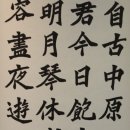 自古中原
君今日飽
明月琴休
容盡夜遊